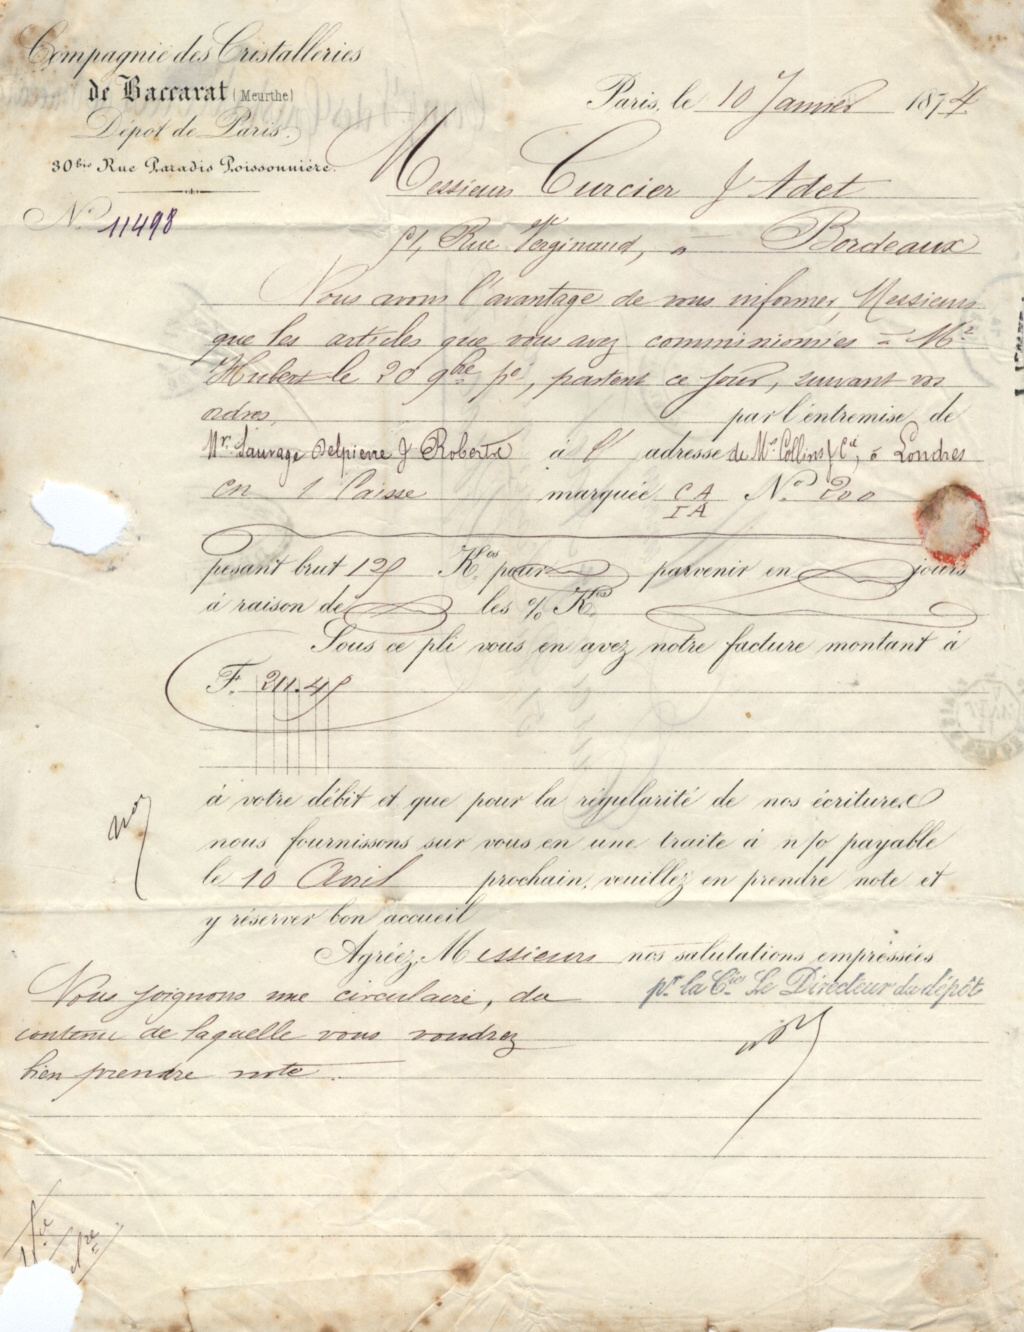 Compagnie des Cristalleries
de Baccarat (Meurthe)
Dépôt de Paris.
30bis Rue Paradis Poissonnière.
N° 11498
Paris, le 10 Janvier 1874
Messieurs Curcier & Adet
Rue Verginaud, à Bordeaux
Nous avons l'avantage de vous informer, Messieurs
que les articles que vous avez commissionnés à Mr
Hubert le 20 9bre pé, partent ce jour, suivant vos
ordres, par l'entremise de
Mr. Sauvage Delpierre & Robertx à l' adresse de Mrs Collins & Cie, à Londres
en 1 Caisse marquée CA N° 200
IA
pesant brut 125 Kos, pour parvenir en jours
à raison de les % Kos
Sous ce pli vous en avez notre facture montant à
F. 211.45
à votre débit et que pour la régularité de nos écritures
nous fournissons sur vous en une traite à n/o payable
le 10 Avril prochain, veuillez en prendre note et
y réserver bon accueil
Agréez, Messieurs nos salutations empressées
pr. la Cie, Le Directeur du dépôt
Nous joignons une circulaire, du
contenu de laquelle vous voudrez
bien prendre note.